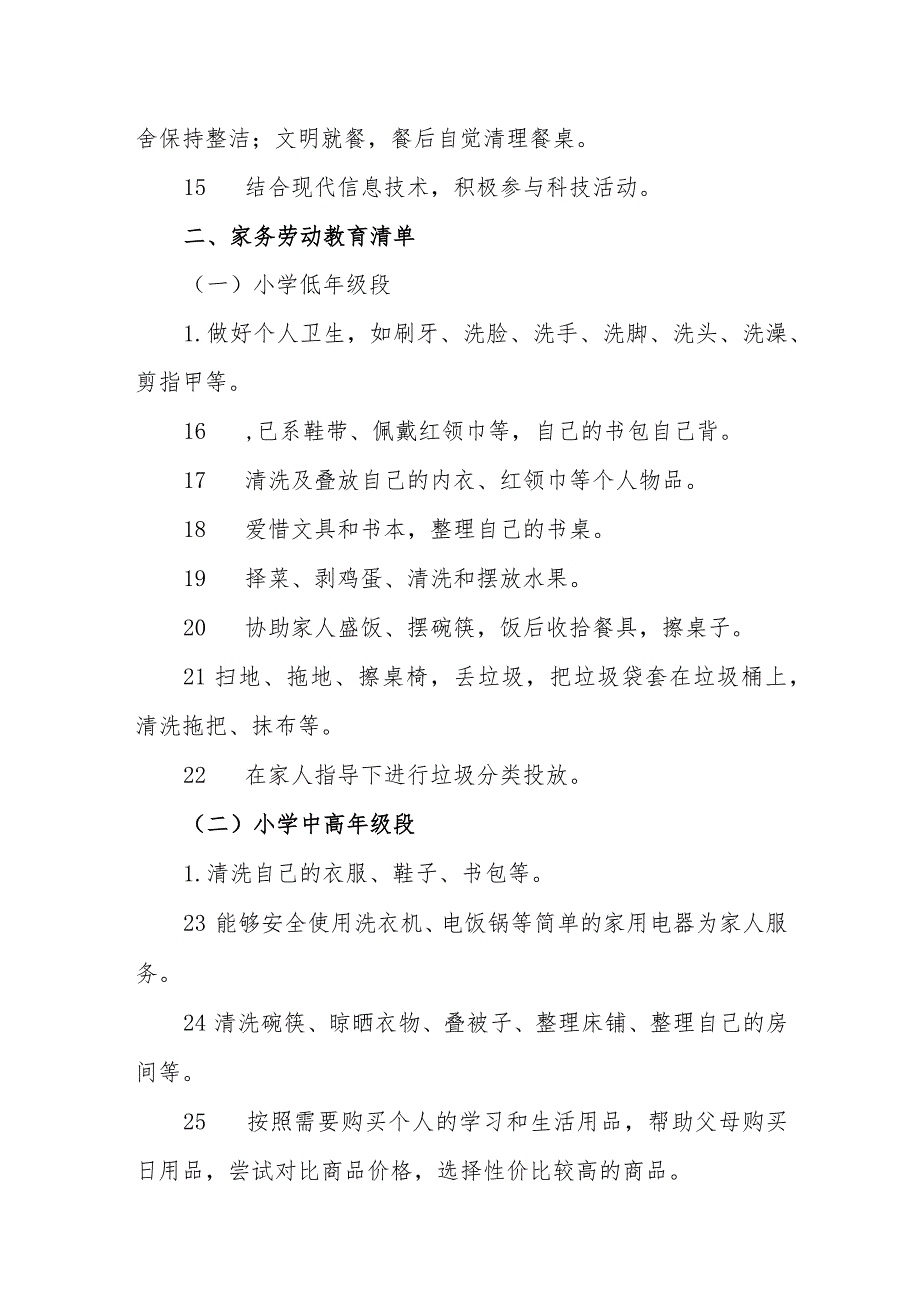 舍保持整洁；文明就餐，餐后自觉清理餐桌。
15 结合现代信息技术，积极参与科技活动。
二、家务劳动教育清单
（一）小学低年级段
1.做好个人卫生，如刷牙、洗脸、洗手、洗脚、洗头、洗澡、
剪指甲等。
16 ,已系鞋带、佩戴红领巾等，自己的书包自己背。
17 清洗及叠放自己的内衣、红领巾等个人物品。
18 爱惜文具和书本，整理自己的书桌。
19 择菜、剥鸡蛋、清洗和摆放水果。
20 协助家人盛饭、摆碗筷，饭后收拾餐具，擦桌子。
21 扫地、拖地、擦桌椅，丢垃圾，把垃圾袋套在垃圾桶上，
清洗拖把、抹布等。
22 在家人指导下进行垃圾分类投放。
（二）小学中高年级段
1.清洗自己的衣服、鞋子、书包等。
23 能够安全使用洗衣机、电饭锅等简单的家用电器为家人服
务。
24 清洗碗筷、晾晒衣物、叠被子、整理床铺、整理自己的房
间等。
25 按照需要购买个人的学习和生活用品，帮助父母购买
日用品，尝试对比商品价格，选择性价比较高的商品。